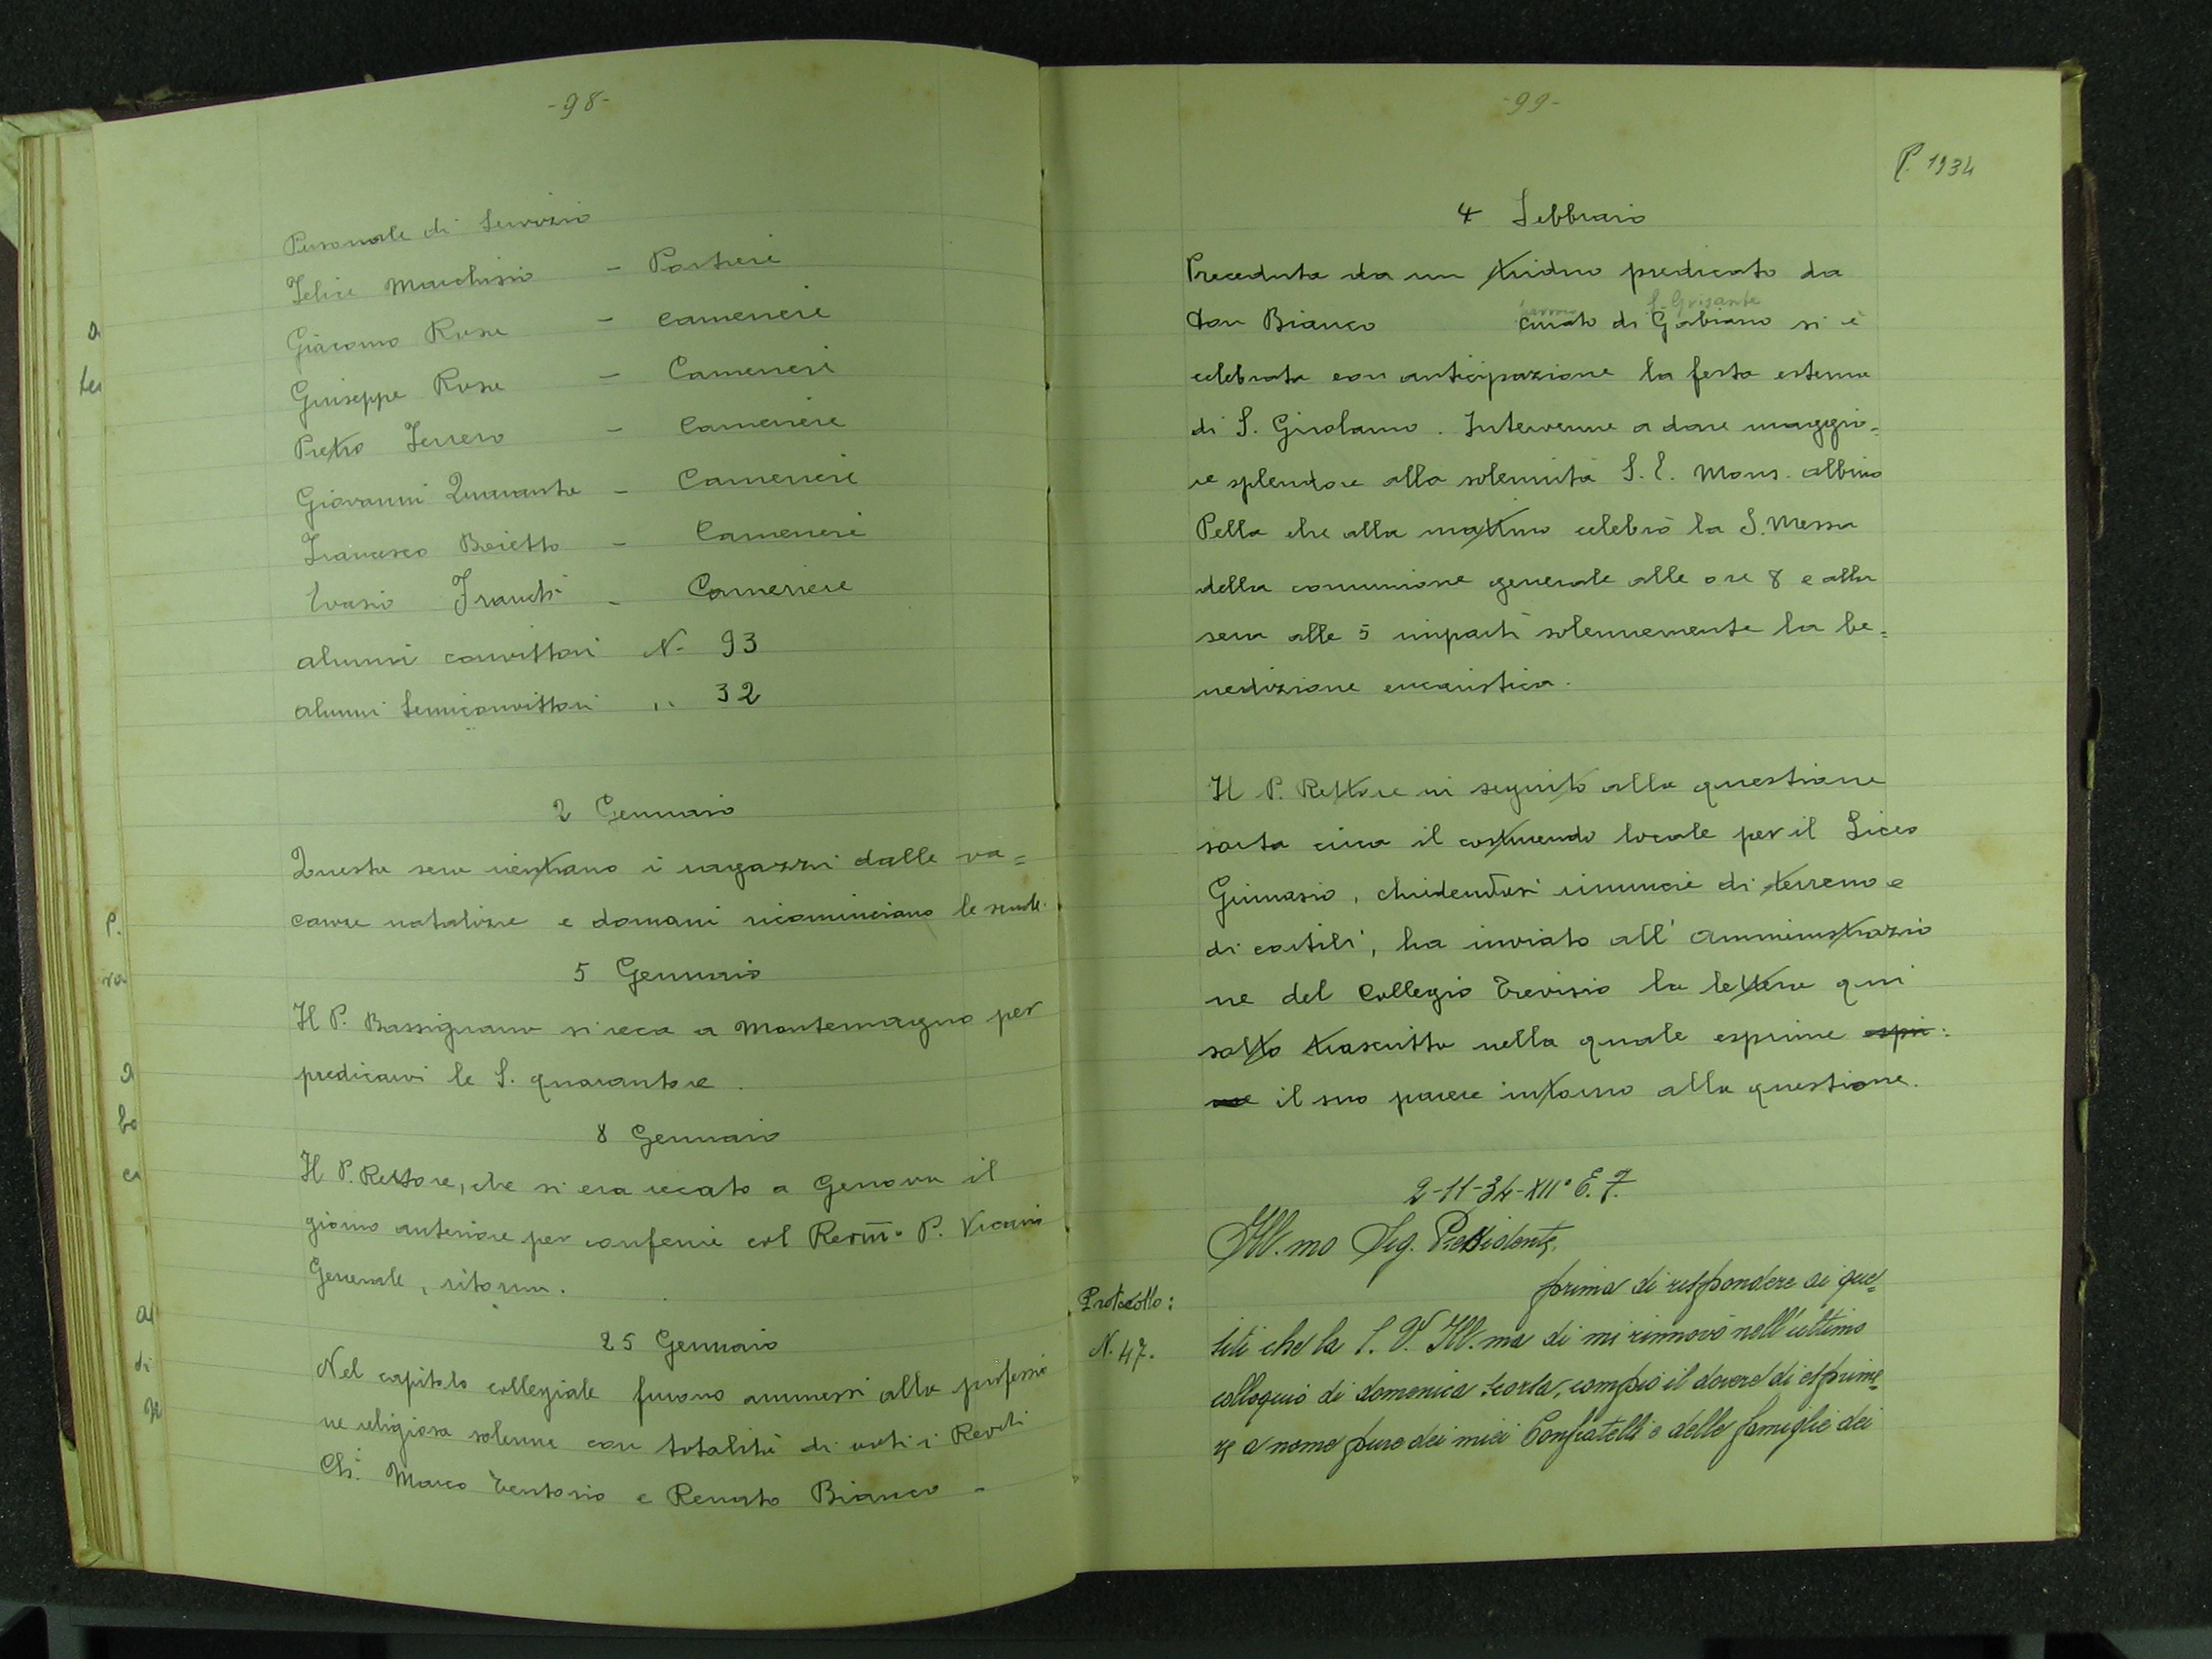 -98-
Personale di Servizio
Felice Marchisio - Portiere
Giacomo Rosu - Cameriere
Giuseppe Rosu - Cameriere
Pietro Ferrero - Cameriere
Giovanni Quaranta - Cameriere
Francesco Boietto - Cameriere
Evasio Franchi - Cameriere
alunni convittori N. 93
alunni Semiconvittori ,, 32
2 Gennaio
Questa sera rientrano i ragazzi dalle va=
canze natalizie e domani ricominciano le scuole.
5 Gennaio
Il P. Bassignano si reca a Montemagno per
predicarvi le S. quarantore.
8 Gennaio
Il P. Rettore, che si era recato a Genova il
giorno anteriore per conferire col Revm̅o P. Vicario
Generale, ritorna.
25 Gennaio
Nel capitolo collegiale furono ammessi alla professio
ne religiosa solenne con totalità di voti i Revdi
Ch. Marco Tentorio e Renato Bianco -
-99-
P. 1934
4 Febbraio
Preceduta da un triduo predicato da
S. Grisante
don Bianco curato di Gabiano si è
celebrata con anticipazione la festa esterna
di S. Girolamo. Intervenne a dare maggio=
re splendore alla solennità S. E. Mons. Albino
Pella che alla mattina celebrò la S. Messa
della comunione generale alle ore 8 e alla
sera alle 5 impartì solennemente la be=
nedizione eucaristica.
Il P. Rettore in seguito alla questione
sorta circa il costruendo locale per il Liceo
Ginnasio, chiedendosi rinuncie di terreno e
di cortili, ha inviato all' Amministrazio
ne del Collegio Trevisio la lettera qui
sotto trascritta nella quale esprime espri=
me il suo parere intorno alla questione.
2-11-34-XII° E. F.
Ill.mo Sig. Presidente,
Protocollo:
N. 47.
prima di rispondere ai que=
siti che la S. V. Ill.ma di mi rinnovò nell'ultimo
colloquio di domenica scorsa, compio il dovere di esprime=
re a nome pure dei miei Confratelli e delle famiglie dei